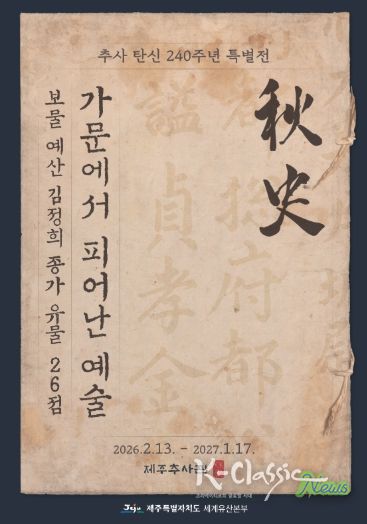 추사 탄신 240주년 특별전
秋史
가문에서 피어난 예술
보물 예산 김정희 종가 유물 26점
諡貞孝金
府都
2026.2.13. - 2027.1.17.
제주추사관
K-Classic News
Jeju 제주특별자치도 세계유산본부